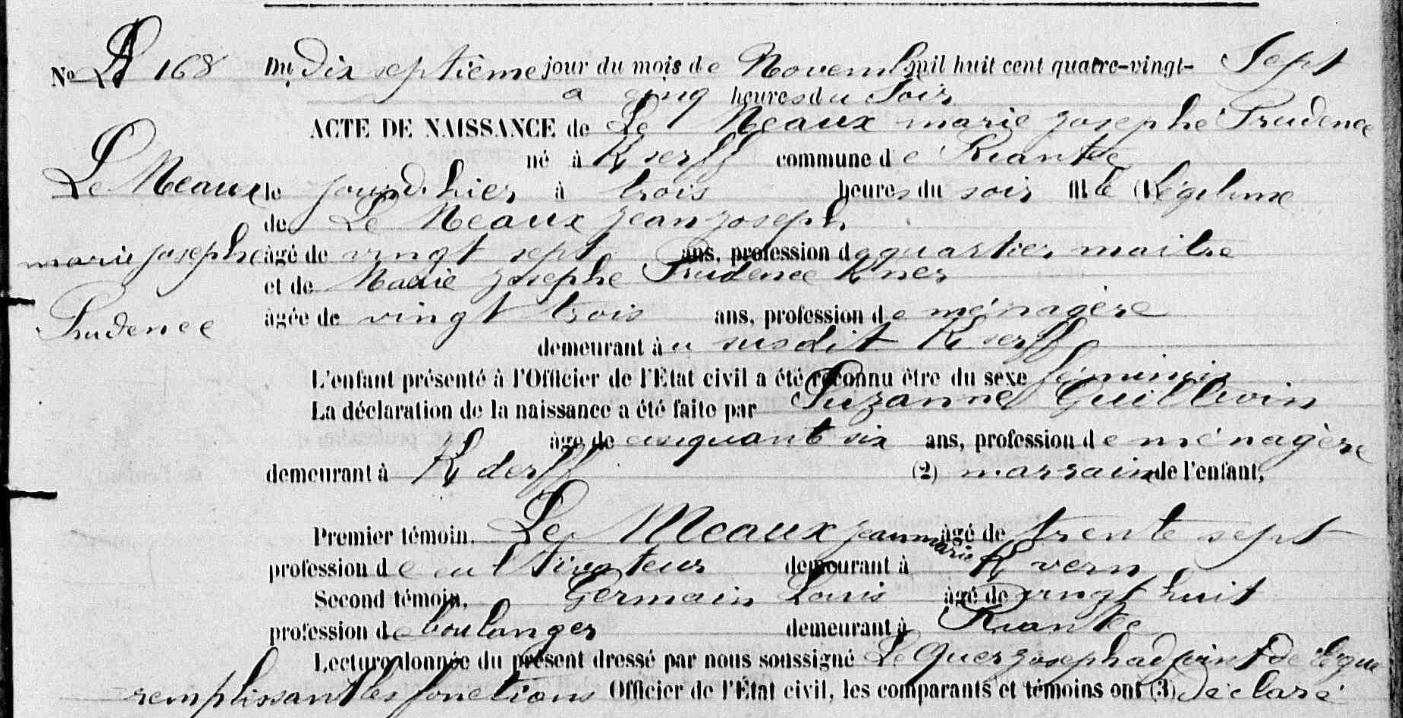 No 168 Du dix septième jour du mois de Novemb mil huit cent quatre-vingt- Sept
a cinq heures du Soir
ACTE DE NAISSANCE de Le Meaux marie josephe Prudence
né à K serff commune de Riantec
Le Meaux le jourd'hier à trois heures du soir fille (1) Légitime
de Le Meaux jean joseph
marie josephe âgé de vingt sept ans, profession de quartier maitre
et de Marie josephe Prudence Kner
Prudence âgée de vingt trois ans, profession de ménagère
demeurant à u susdit K serff
L'enfant présenté à l'Officier de l'État civil a été reconnu être du sexe féminin
La déclaration de la naissance a été faite par Suzanne Guillevin
âgé de cinquant six ans, profession de ménagère
demeurant à K derff (2) marraine de l'enfant,
Premier témoin, Le Meaux jean marie âgé de trente sept
profession de cultivateur demeurant à K vern
Second témoin, Germain Louis âgé de vingt huit
profession de boulanger demeurant à Riantec
Lecture donnée du présent dressé par nous soussigné Le Quer joseph adjoint
remplissant les fonctions Officier de l'État civil, les comparants et témoins ont (3) déclaré